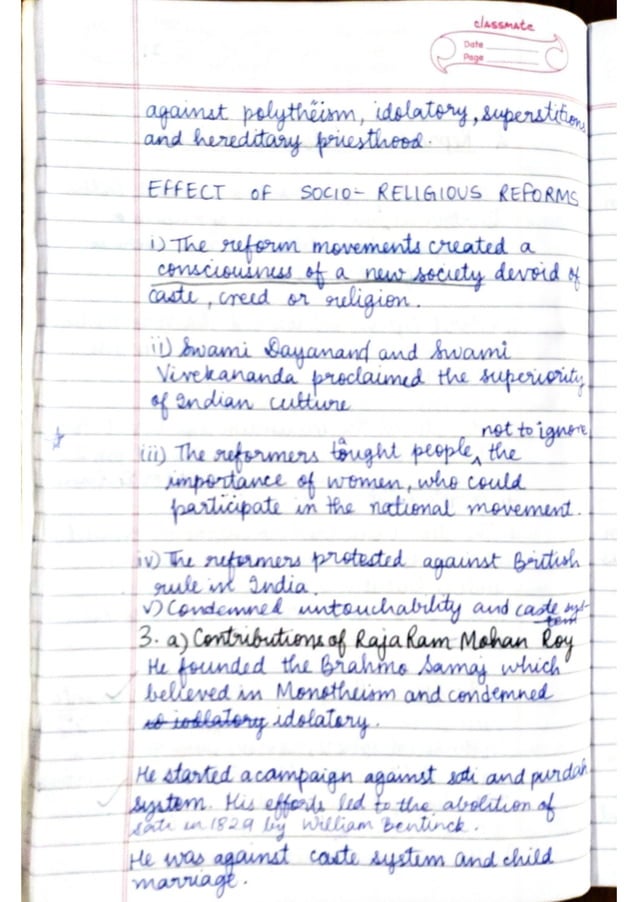 classmate
Date
Page
against polytheism, idolatory, superstitions
and hereditary priesthood.
EFFECT OF SOCIO-RELIGIOUS REFORMS
i) The reform movements created a
consciousness of a new society devoid of
caste, creed or religion.
ii) Swami Dayanand and Swami
Vivekananda proclaimed the superiority
of Indian culture
not to ignore
iii) The reformers tought people ^ the
importance of women, who could
participate in the national movement.
iv) The reformers protested against British
rule in India.
v) Condemned untouchability and caste sys-
tem
3. a) Contributions of Raja Ram Mohan Roy
He founded the Brahmo Samaj which
believed in Monotheism and condemned
idolatory.
He started a campaign against sati and purdah
system. His efforts led to the abolition of
sati in 1829 by William Bentinck.
He was against caste system and child
marriage.